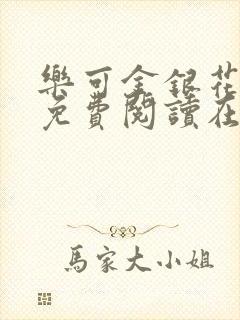 樂可金銀花
免費閱讀在
馬家大小姐